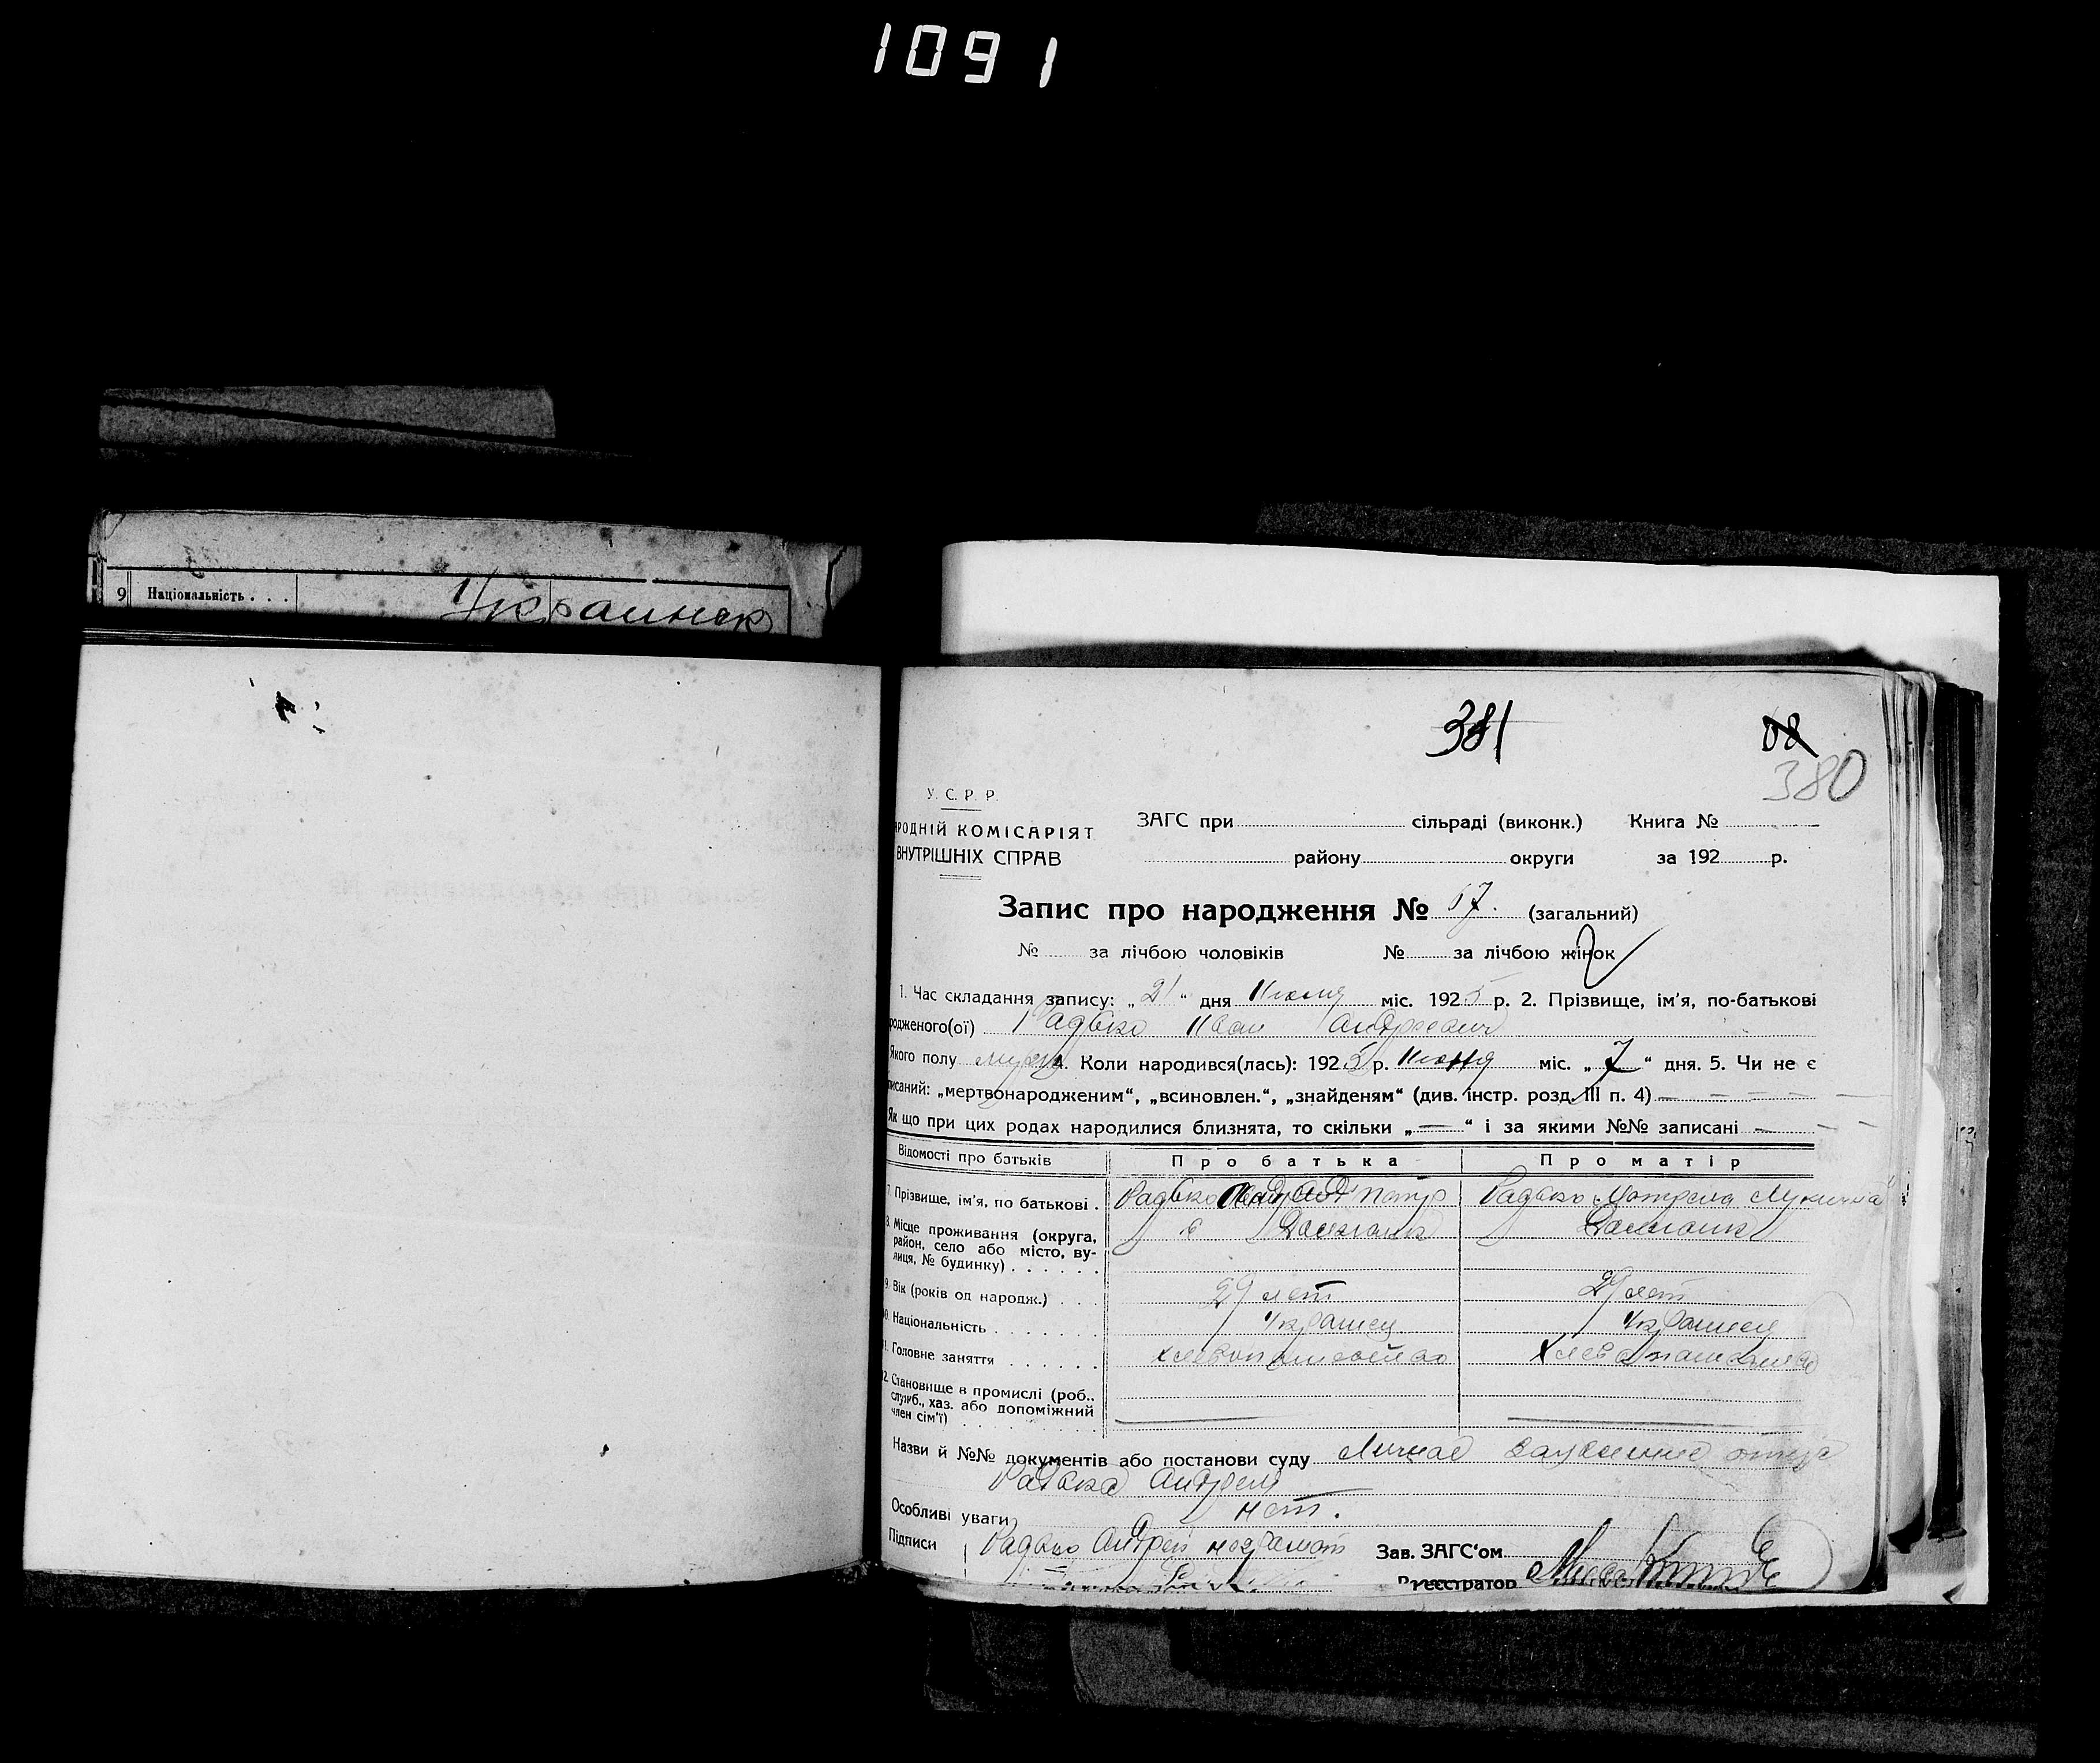 1091
9 Національність . . . Украинск
381
68
380
У. С. Р. Р.
РОДНІЙ КОМІСАРІЯТ
ВНУТРІШНІХ СПРАВ
ЗАГС при сільраді (виконк.) Книга №
району округи за 192 р.
Запис про народження № 67. (загальний)
№ за лічбою чоловіків № за лічбою жінок
1. Час складання запису: „21“ дня Июня міс. 1925 р. 2. Прізвище, ім'я, по-батькові
родженого(ої) Радько Иван Андреевич
Якого полу муж. Коли народився(лась): 1925 р. Июня міс. „7“ дня. 5. Чи не є
писаний: „мертвонародженим“, „всиновлен.“, „знайденям“ (див. інстр. розд. III п. 4) —
Як що при цих родах народилися близнята, то скільки „—“ і за якими №№ записані —
Відомості про батьків Про батька Про матір
7. Прізвище, ім'я, по батькові . Радько Радько Мотрона Лукична
8. Місце проживання (округа, район, село або місто, вулиця, № будинку) . . . . . . с
9. Вік (років од народж.) . . . 29 лет 29 лет
10. Національність . . . . . . . Украинец Украинец
11. Головне заняття . . . . . . хлебопашество хлебопашество
12. Становище в промислі (роб., служб., хаз. або допоміжний член сім'ї) . . . . . . .
Назви й №№ документів або постанови суду Личное отца
Радька Андрея
Особливі уваги нет.
Підписи Радько Андрей неграмот Зав. ЗАГС'ом
Реєстратор